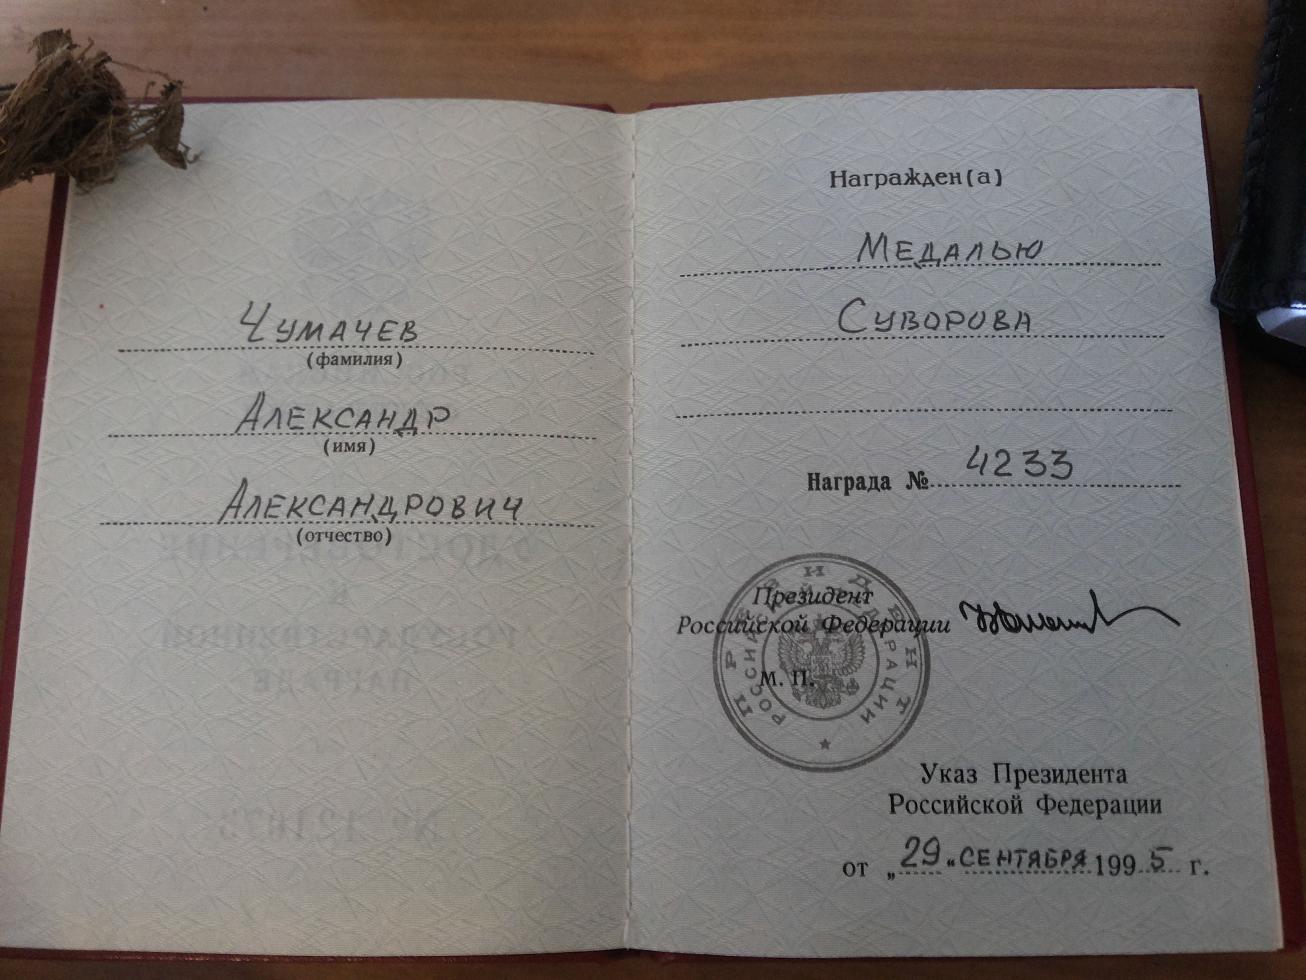 Чумачев
(фамилия)
Александр
(имя)
Александрович
(отчество)
Награжден(а)
Медалью
Суворова
Награда № 4233
ПРЕЗИДЕНТ
РОССИЙСКОЙ ФЕДЕРАЦИИ
Президент
Российской Федерации
М. П.
Указ Президента
Российской Федерации
от „29“ сентября 1995 г.